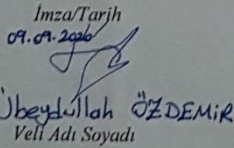 İmza/Tarih
09.09.2020
Übeydullah ÖZDEMİR
Veli Adı Soyadı